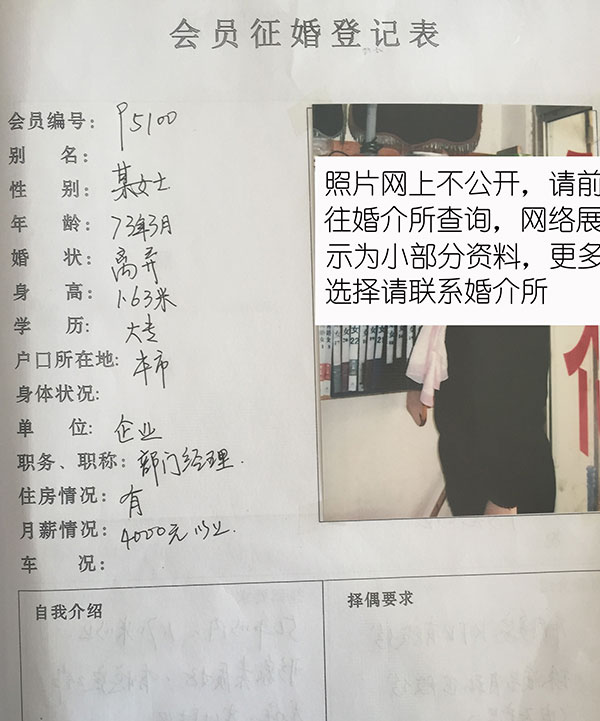 会员征婚登记表
会员编号： P5100
别 名：
性 别： 某女士
年 龄： 73年3月
婚 状： 离异
身 高： 1.63米
学 历: 大专
户口所在地: 本市
身体状况:
单 位: 企业
职务、职称： 部门经理.
住房情况： 有
月薪情况： 4000元以上
车 况：
照片网上不公开，请前
往婚介所查询，网络展
示为小部分资料，更多
选择请联系婚介所
自我介绍
择偶要求